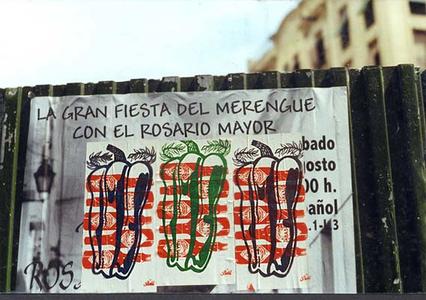 LA GRAN FIESTA DEL MERENGUE
CON EL ROSARIO MAYOR
bado
osto
00 h.
añol
ROS